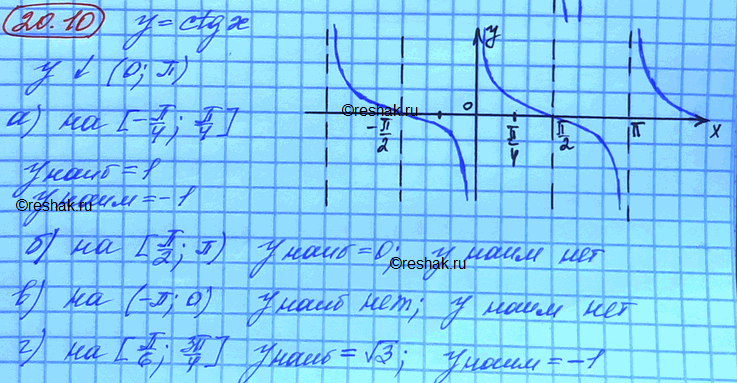 20.10 y = ctg x
y ↓ (0; π)
а) на [-π/4; π/4]
y наиб = 1
y наим = -1
б) на [π/2; π) y наиб = 0; y наим нет
в) на (-π; 0) y наиб нет; y наим нет
г) на [π/6; 3π/4] y наиб = √3; y наим = -1
y
0
-π/2 π/4 π/2 π x
©reshak.ru
©reshak.ru
©reshak.ru